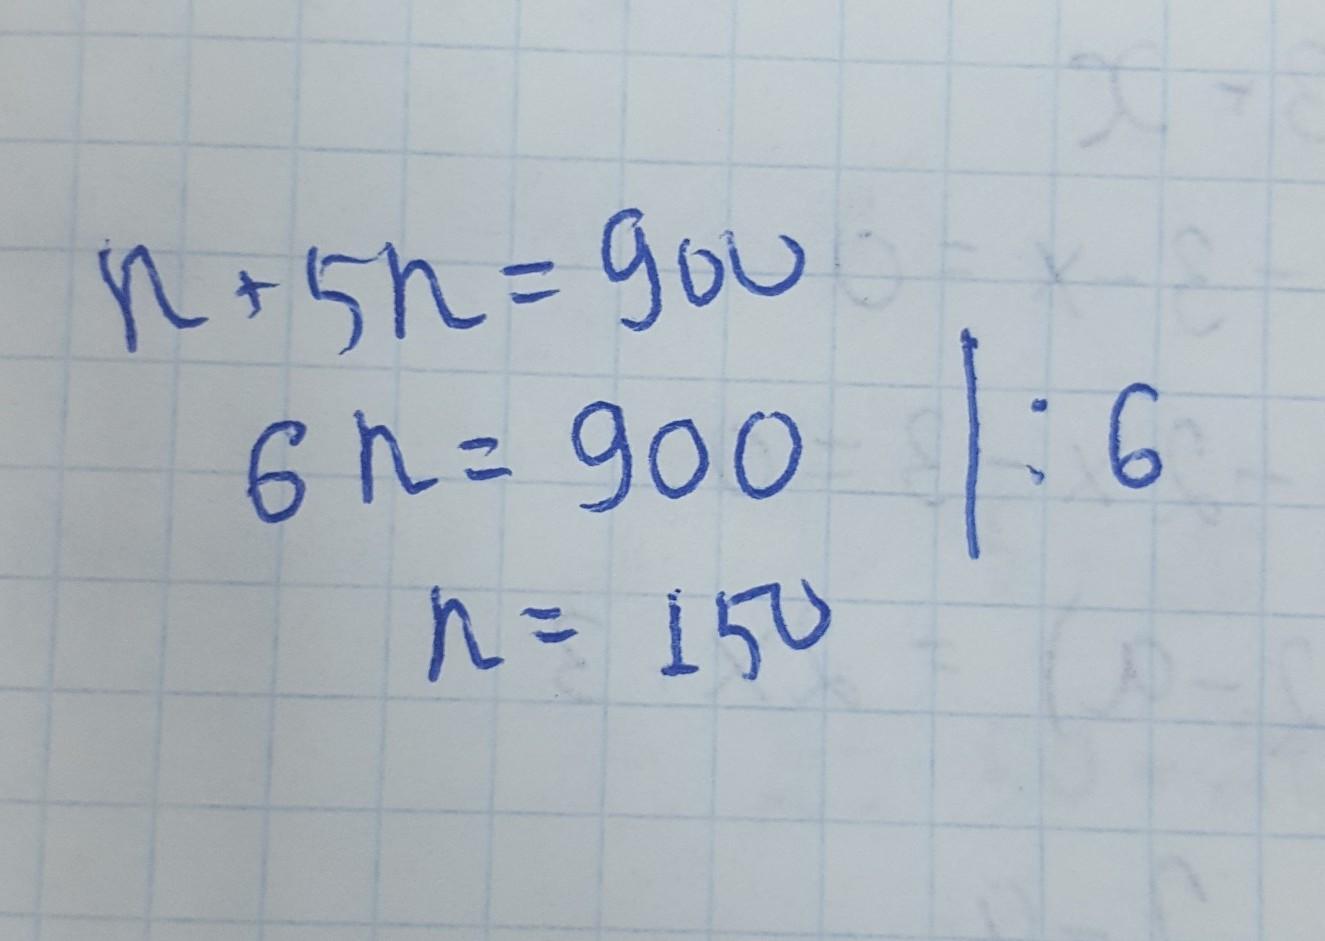 n + 5n = 900
6n = 900 | : 6
n = 150